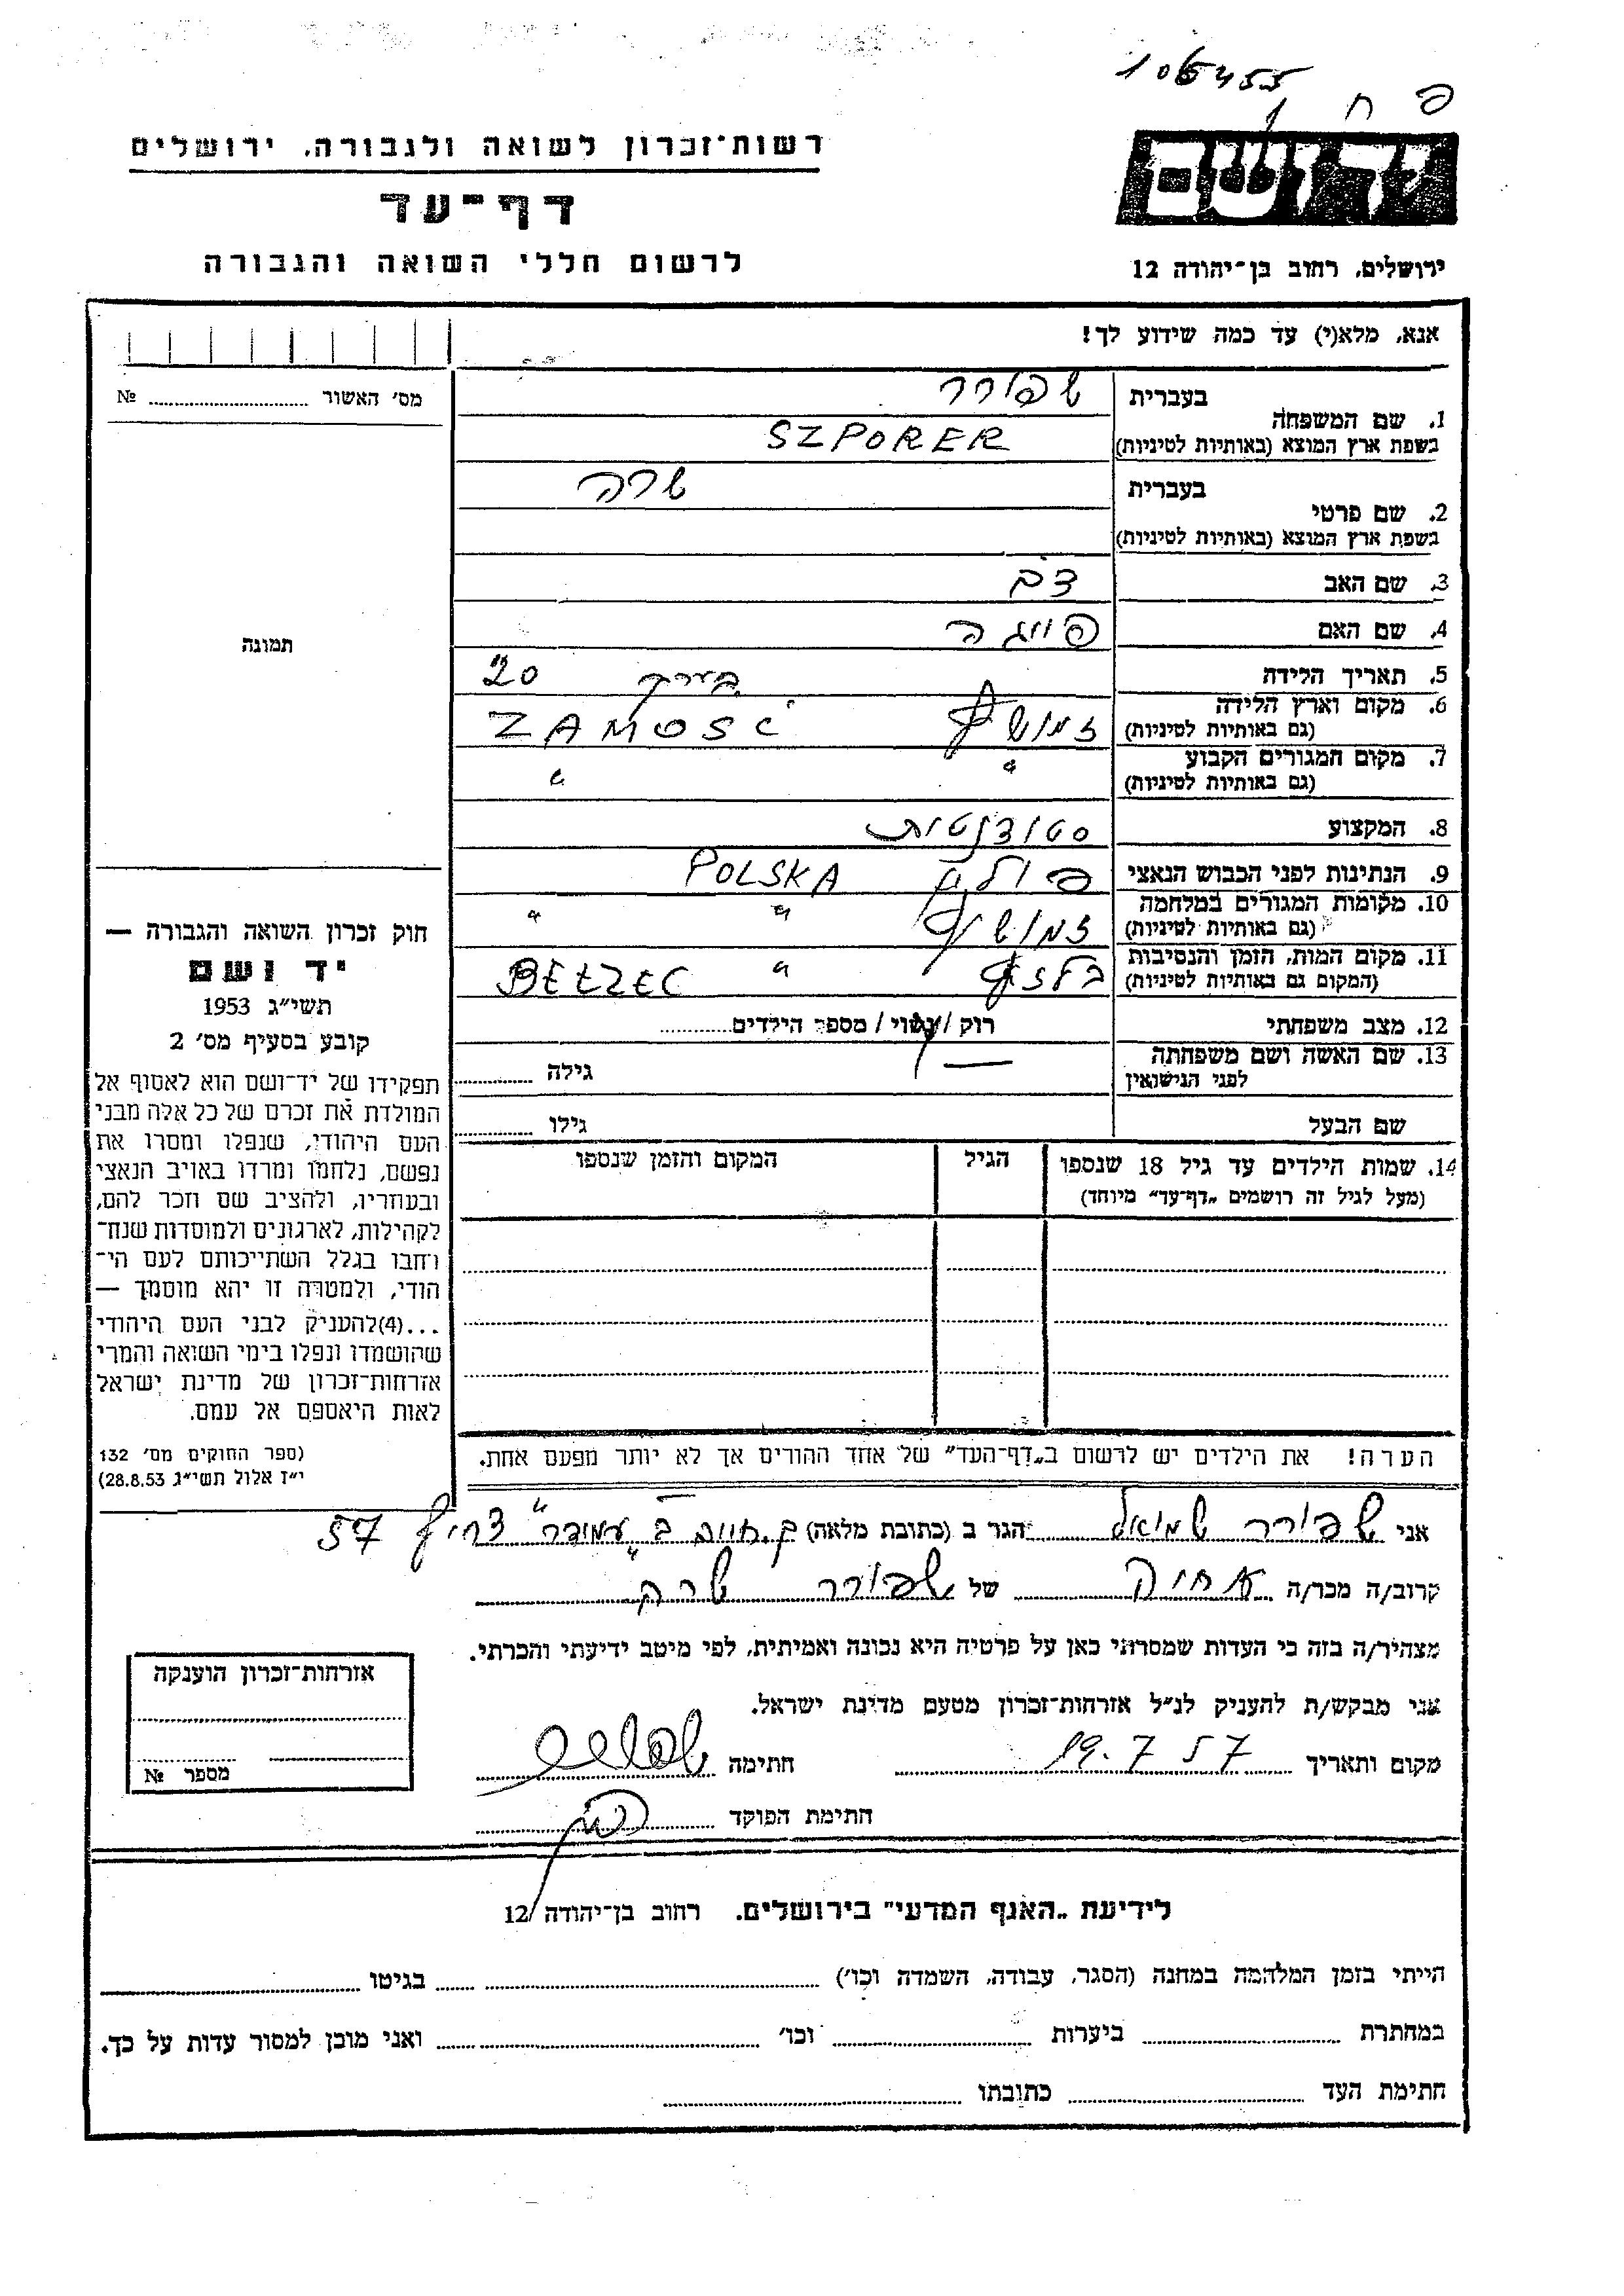 106455
פ ח
יד ושם
רשות־זכרון לשואה ולגבורה, ירושלים
דף־עד
לרשום חללי השואה והגבורה
ירושלים, רחוב בן־יהודה 12
אנא, מלא(י) עד כמה שידוע לך!
מס' האשור № 
1. שם המשפחה בעברית שפורר
בשפת ארץ המוצא (באותיות לטיניות) SZPORER
2. שם פרטי בעברית שרה
בשפת ארץ המוצא (באותיות לטיניות)
3. שם האב דב
4. שם האם פייגה
5. תאריך הלידה בערך 20
6. מקום וארץ הלידה (גם באותיות לטיניות) זמושץ ZAMOSĆ
7. מקום המגורים הקבוע (גם באותיות לטיניות) " "
8. המקצוע סטודנטית
9. הנתינות לפני הכבוש הנאצי פולין POLSKA
10. מקומות המגורים במלחמה (גם באותיות לטיניות) זמושץ " "
11. מקום המות, הזמן והנסיבות (המקום גם באותיות לטיניות) בלזץ " BEŁZEC
12. מצב משפחתי רוק / נשוי / מספר הילדים
13. שם האשה ושם משפחתה לפני הנישואין — גילה
שם הבעל גילו
14. שמות הילדים עד גיל 18 שנספו הגיל המקום והזמן שנספו
(מעל לגיל זה רושמים „דף־עד" מיוחד)
הערה! את הילדים יש לרשום ב„דף־העד" של אחד ההורים אך לא יותר מפעם אחת.
תמונה
חוק זכרון השואה והגבורה —
יד ושם
תשי"ג 1953
קובע בסעיף מס' 2
תפקידו של יד־ושם הוא לאסוף אל
המולדת את זכרם של כל אלה מבני
העם היהודי, שנפלו ומסרו את
נפשם, נלחמו ומרדו באויב הנאצי
ובעוזריו, ולהציב שם וזכר להם,
לקהילות, לארגונים ולמוסדות שנח־
רחבו בגלל השתייכותם לעם הי־
הודי, ולמטרה זו יהא מוסמך —
...(4)להעניק לבני העם היהודי
שהושמדו ונפלו בימי השואה והמרי
אזרחות־זכרון של מדינת ישראל
לאות היאספם אל עמם.
(ספר החוקים מס' 132
י"ז אלול תשי"ג 28.8.53)
אני שפורר שמואל הגר ב (כתובת מלאה) ק. חיים ב „עמידר" צריף 57
קרוב/ה מכר/ה אחיה של שפורר שרה
מצהיר/ה בזה כי העדות שמסרתי כאן על פרטיה היא נכונה ואמיתית, לפי מיטב ידיעתי והכרתי.
אני מבקש/ת להעניק לנ"ל אזרחות־זכרון מטעם מדינת ישראל.
מקום ותאריך 19.7 57 חתימה
חתימת הפוקד
אזרחות־זכרון הוענקה
מספר №
לידיעת „האגף המדעי" בירושלים. רחוב בן־יהודה 12
הייתי בזמן המלחמה במחנה (הסגר, עבודה, השמדה וכו') בגיטו
במחתרת ביערות וכו' ואני מוכן למסור עדות על כך.
חתימת העד כתובתו